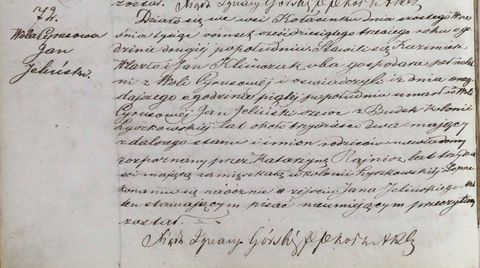 został. Xiądz Ignacy Górski
72.
Wola Cyrusowa
Jan
Jeliński.
Działo się we wsi Kołacinku dnia szóstego Wrze
śnia tysiąc ośmset sześćdziesiątego trzeciego roku o go
dzinie drugiej popołudniu. Stawili się Kazimierz
i Jan Klimczak oba gospodarze rolni
ni z Woli Cyrusowej i oświadczyli iż dnia wczo
rajszego o godzinie piątej popołudniu umarł w Woli
Cyrusowej Jan Jeliński szewc z Budek Kolonii
Łyszkowskiej lat około trzydzieści dwa mający
z dalszego stanu i imion rodziców niewiadomy
rozpoznany przez Katarzynę lat trzydzie
ści mającą zamieszkałą w kolonii Łyszkowskiej. Po prze
konaniu się naocznie o zejściu Jana Jelińskiego Akt
ten stawającym pisać nieumiejącym przeczytany
został.
Xiądz Ignacy Górski